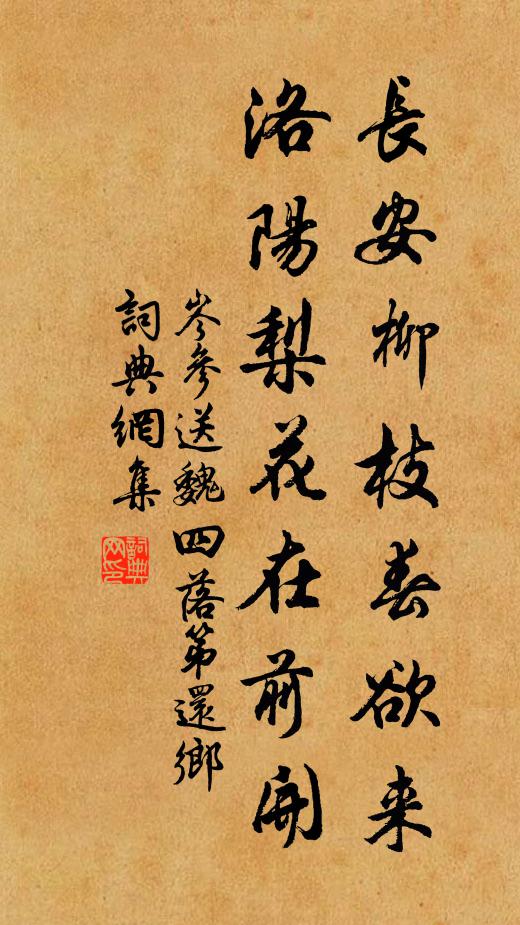 長安柳枝春欲来
洛陽梨花在前開
岑參送魏四落第還鄉
詞典網集
詞典网印